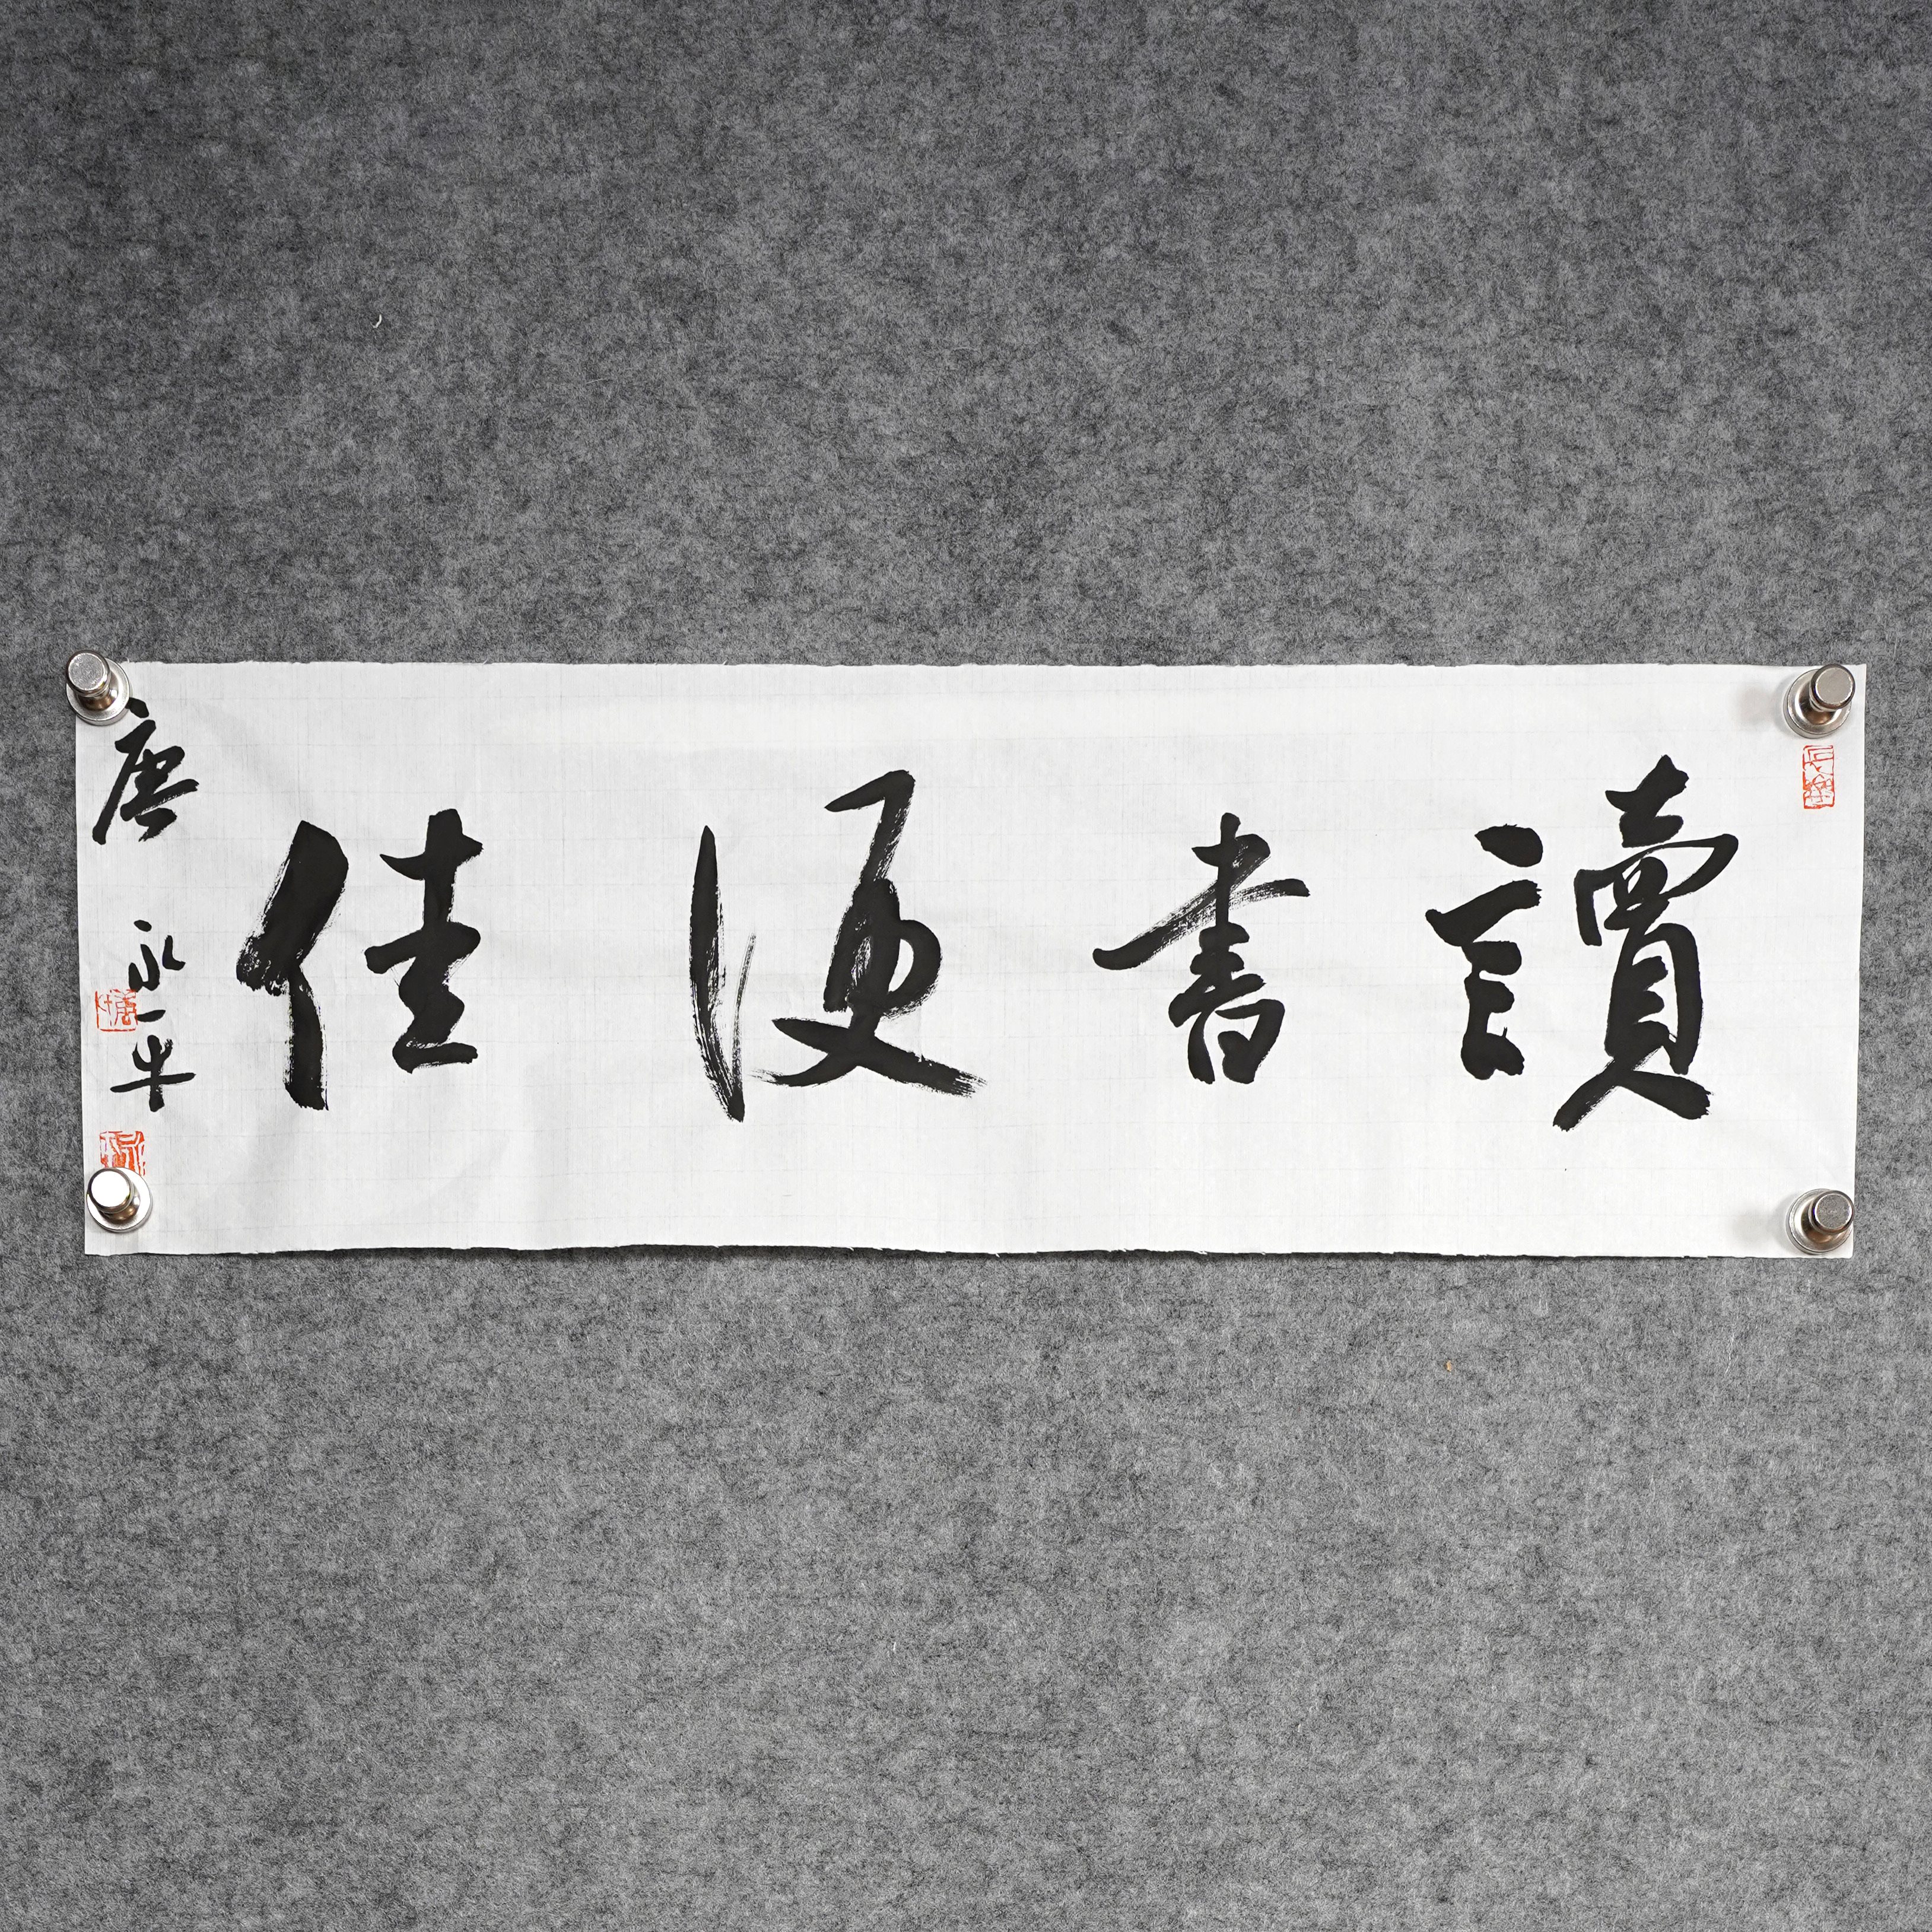 讀書便佳
唐永平